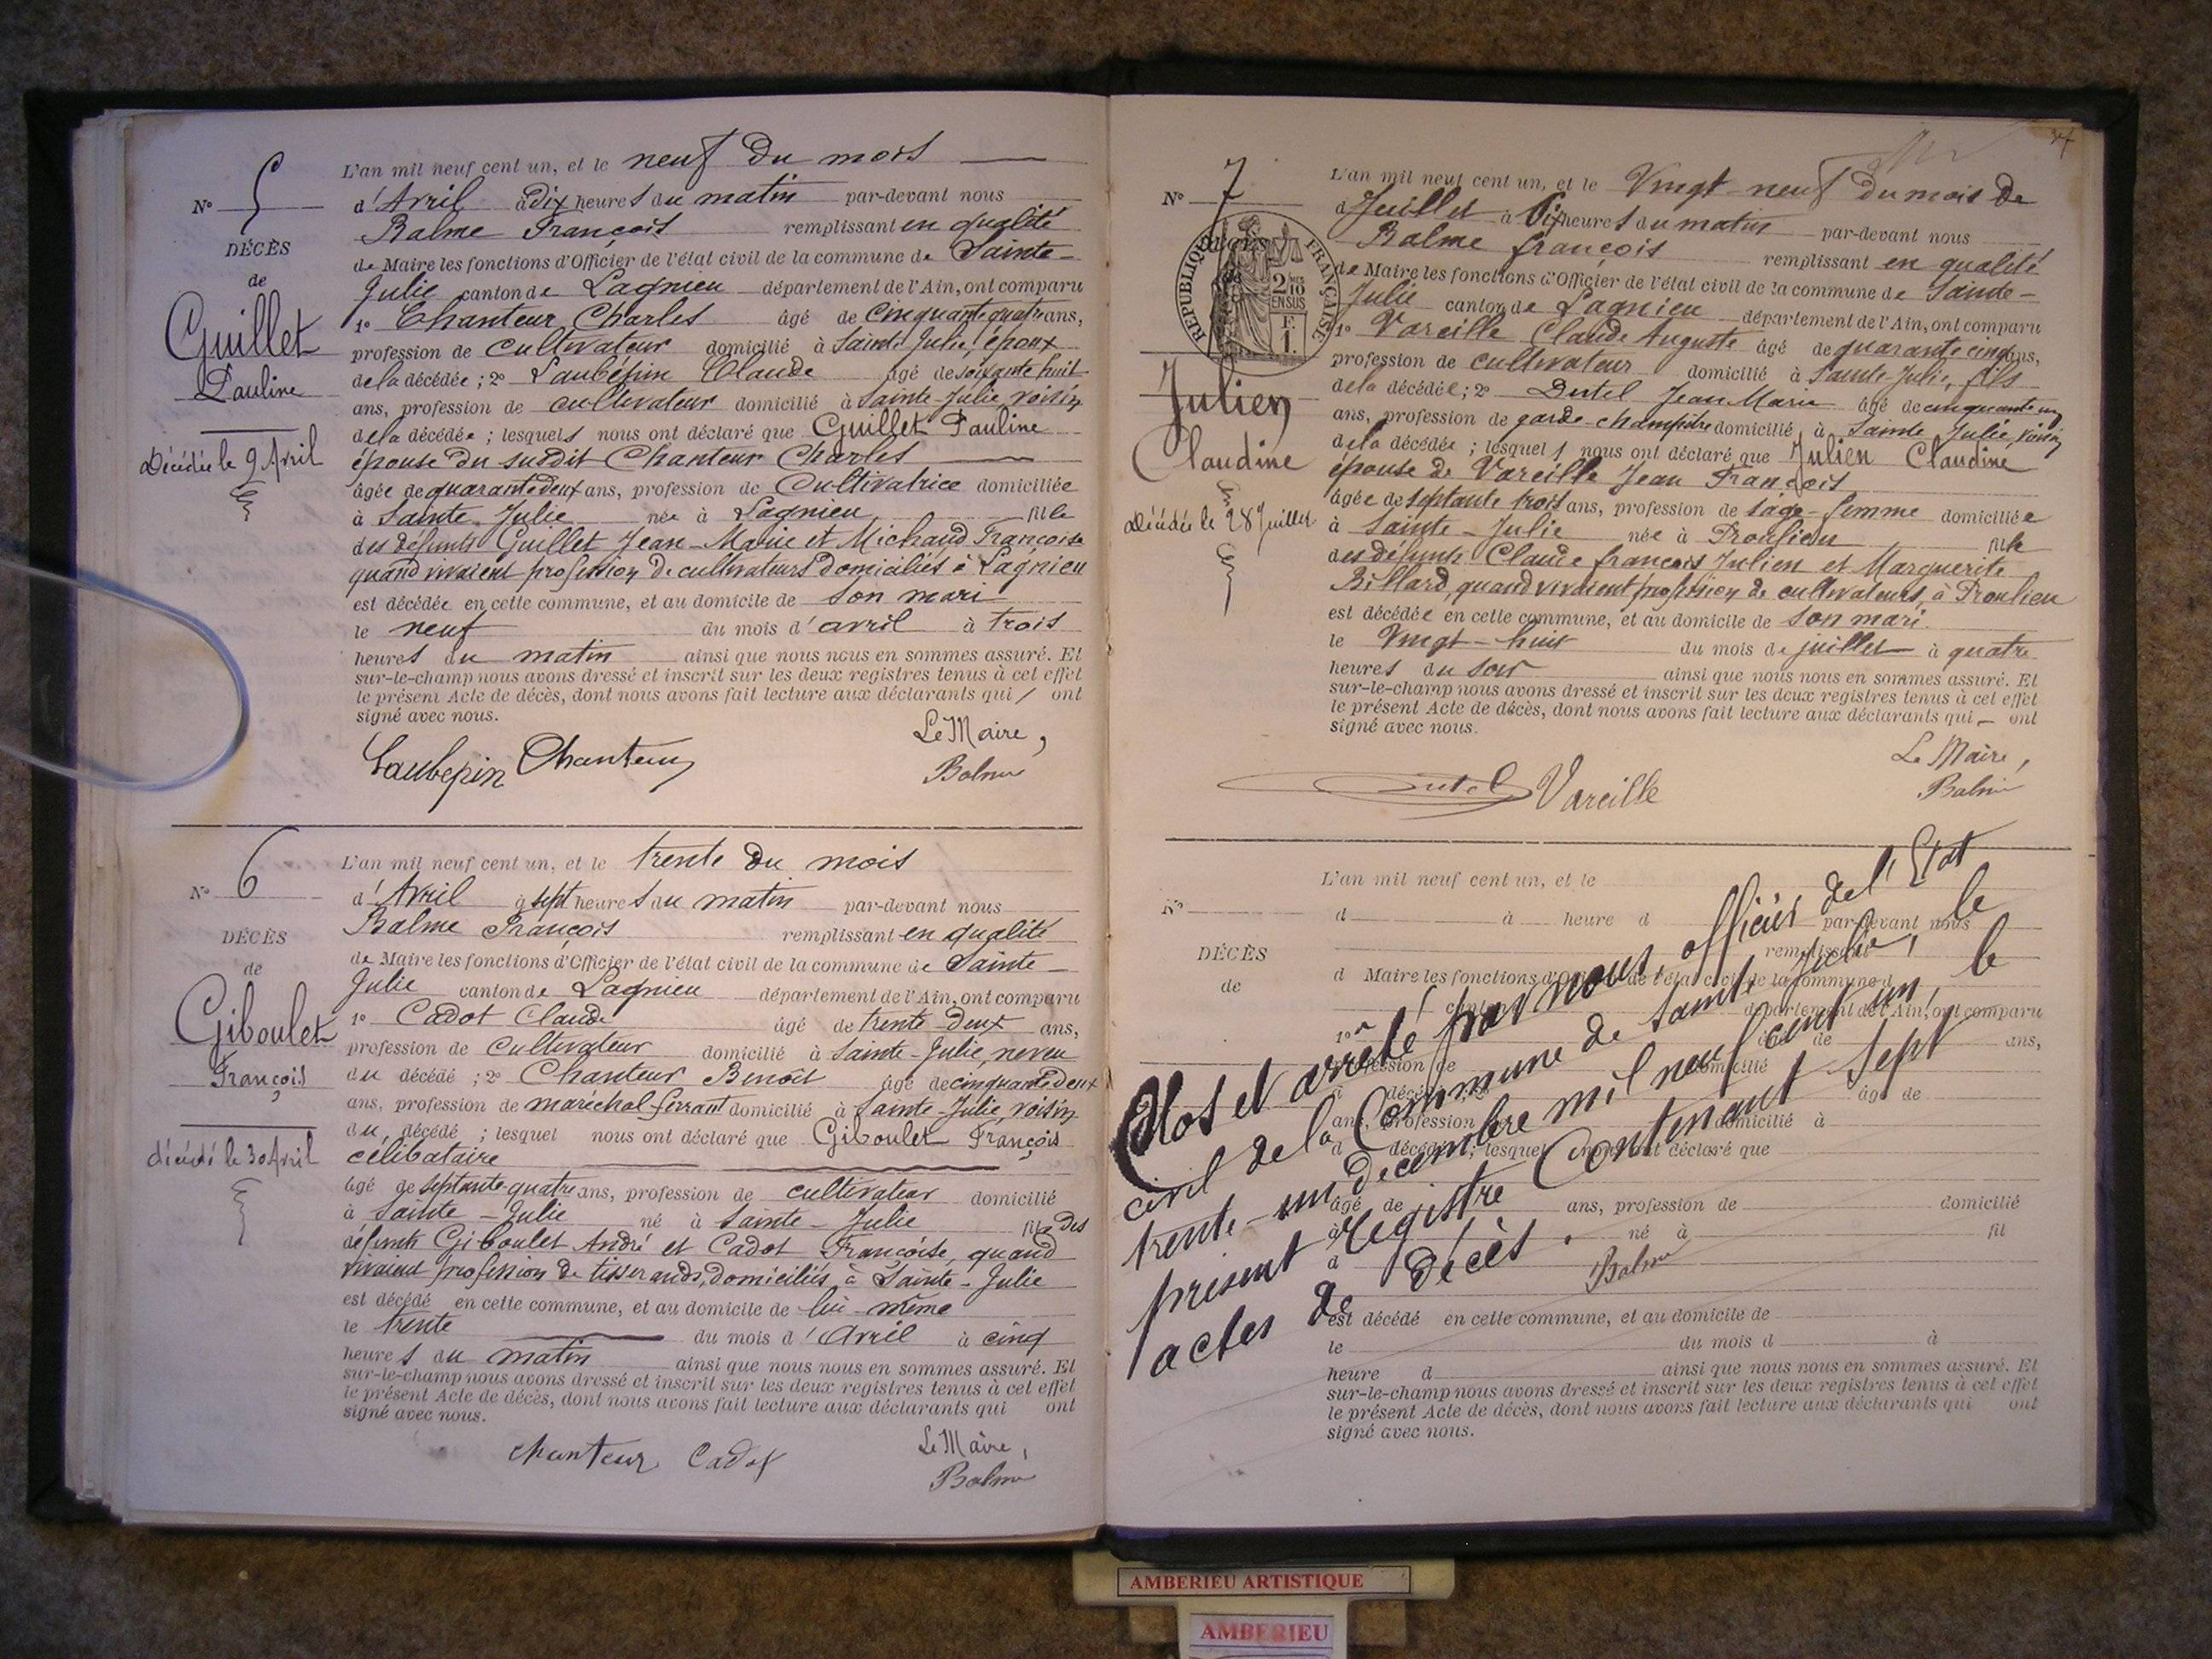 N° 5
DÉCÈS
de
Guillet
Pauline
Décédée le 9 Avril
L'an mil neuf cent un, et le neuf du mois
d'Avril à dix heures du matin par-devant nous
Balme François remplissant en qualité
de Maire les fonctions d'Officier de l'état civil de la commune de Sainte-
Julie canton de Lagnieu département de l'Ain, ont comparu
1° Chanteur Charles âgé de cinquante quatre ans,
profession de cultivateur domicilié à Sainte Julie, époux
de la décédée ; 2° Laubépin Claude âgé de soixante huit
ans, profession de cultivateur domicilié à Sainte-Julie, voisin
de la décédée ; lesquels nous ont déclaré que Guillet Pauline
épouse du susdit Chanteur Charles
âgée de quarante deux ans, profession de Cultivatrice domiciliée
à Sainte Julie née à Lagnieu fille
des défunts Guillet Jean-Marie et Michaud Françoise
quand vivaient profession de cultivateurs domiciliés à Lagnieu
est décédée en cette commune, et au domicile de son mari
le neuf du mois d'avril à trois
heures du matin ainsi que nous nous en sommes assuré. Et
sur-le-champ nous avons dressé et inscrit sur les deux registres tenus à cet effet
le présent Acte de décès, dont nous avons fait lecture aux déclarants qui / ont
signé avec nous.
Le Maire,
Laubepin Chanteur Balme
N° 6
DÉCÈS
de
Giboulet
François
décédé le 30 Avril
L'an mil neuf cent un, et le trente du mois
d'Avril à sept heures du matin par-devant nous
Balme François remplissant en qualité
de Maire les fonctions d'Officier de l'état civil de la commune de Sainte-
Julie canton de Lagnieu département de l'Ain, ont comparu
1° Cadot Claude âgé de trente-deux ans,
profession de Cultivateur domicilié à Sainte-Julie, neveu
du décédé ; 2° Chanteur Benoît âgé de cinquante deux
ans, profession de maréchal-ferrant domicilié à Sainte-Julie, voisin
du décédé ; lesquel nous ont déclaré que Giboulet François
célibataire
âgé de septante-quatre ans, profession de cultivateur domicilié
à Sainte-Julie né à Sainte-Julie fils des
défunts Giboulet André et Cadot Françoise, quand
vivaient profession de tisserands, domiciliés à Sainte-Julie
est décédé en cette commune, et au domicile de lui-même
le trente du mois d'Avril à cinq
heures du matin ainsi que nous nous en sommes assuré. Et
sur-le-champ nous avons dressé et inscrit sur les deux registres tenus à cet effet
le présent Acte de décès, dont nous avons fait lecture aux déclarants qui ont
signé avec nous.
Le Maire,
chanteur Cadot Balme
37
N° 7
RÉPUBLIQUE FRANÇAISE
2/10
EN SUS
F.
1.
Julien
Claudine
Décédée le 28 Juillet
L'an mil neuf cent un, et le Vingt-neuf du mois de
d Juillet à Dix heures du matin par-devant nous
Balme françois remplissant en qualité
de Maire les fonctions d'Officier de l'état civil de la commune de Sainte-
Julie canton de Lagnieu département de l'Ain, ont comparu
1° Vareille Claude Auguste âgé de quarante cinq ans,
profession de cultivateur domicilié à Sainte-Julie, fils
de la décédée ; 2° Dutel Jean Marie âgé de cinquante un
ans, profession de garde-champêtre domicilié à Sainte Julie, voisin
de la décédée ; lesquels nous ont déclaré que Julien Claudine
épouse de Vareille Jean François
âgée de septante trois ans, profession de sage-femme domiciliée
à Sainte-Julie née à Proulieu fille
des défunts Claude françois Julien et Marguerite
Billard, quand vivaient profession de cultivateurs, à Proulieu
est décédée en cette commune, et au domicile de son mari
le Vingt-huit du mois de juillet à quatre
heures du soir ainsi que nous nous en sommes assuré. Et
sur-le-champ nous avons dressé et inscrit sur les deux registres tenus à cet effet
le présent Acte de décès, dont nous avons fait lecture aux déclarants qui – ont
signé avec nous.
Le Maire,
Dutel Vareille Balme
N°
DÉCÈS
de
L'an mil neuf cent un, et le
d à heure d par-devant nous
remplissant
d Maire les fonctions d'Officier de l'état civil de la commune d
canton d département de l'Ain, ont comparu
1° âgé de ans,
profession de domicilié
d décédé ; 2° âgé de
ans, profession domicilié à
d décédé ; lesquel nous ont déclaré que
âgé de ans, profession de domicilié
à né à fil
d
est décédé en cette commune, et au domicile de
le du mois d à
heure d ainsi que nous nous en sommes assuré. Et
sur-le-champ nous avons dressé et inscrit sur les deux registres tenus à cet effet
le présent Acte de décès, dont nous avons fait lecture aux déclarants qui ont
signé avec nous.
Clos et arrêté par nous, officier de l'Etat
civil de la Commune de Sainte Julie, le
trente-un décembre mil neuf cent un, le
présent registre Contenant sept
actes de décès.
Balme
AMBERIEU ARTISTIQUE
AMBERIEU